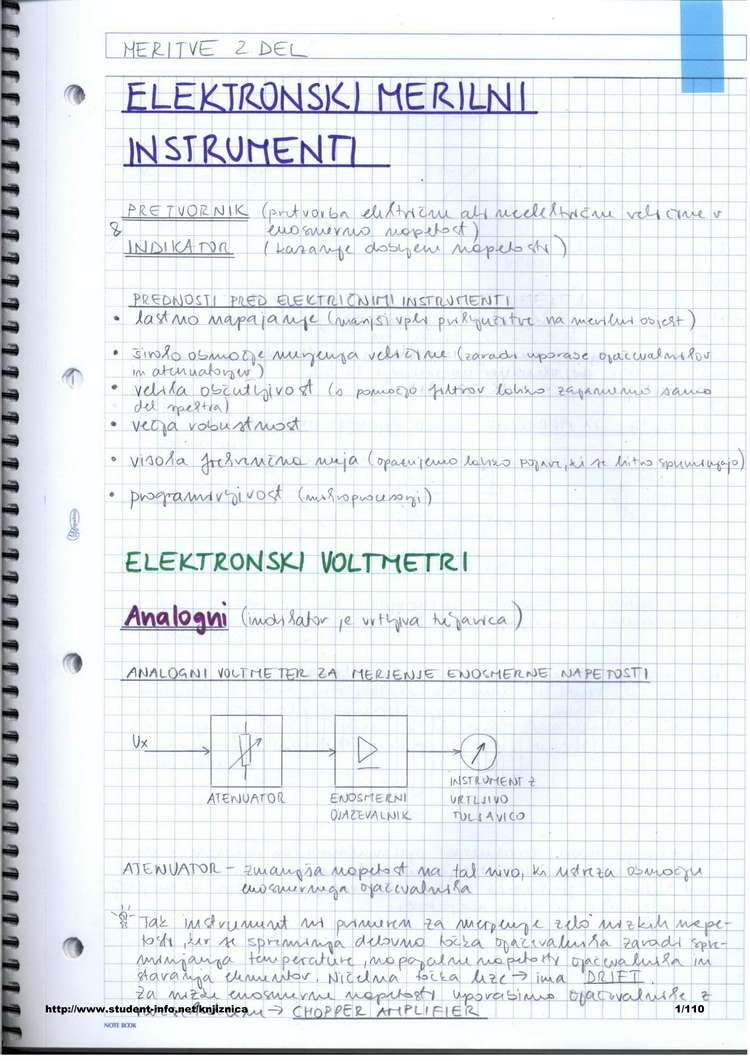 MERITVE 2 DEL
ELEKTRONSKI MERILNI
INSTRUMENTI
PRETVORNIK (pretvorba električne ali neelektrične veličine v
& enosmerno napetost)
INDIKATOR (kazanje dobljene napetosti)
PREDNOSTI PRED ELEKTRIČNIMI INSTRUMENTI
• lastno napajanje (manjši vpliv priključitve na merilni objekt)
• široko območje merjenja veličine (zaradi uporabe ojačevalnikov
in atenuatorjev)
• velika občutljivost (s pomočjo filtrov lahko zajamemo samo
del spektra)
• večja robustnost
• visoka frekvenčna meja (opazujemo lahko pojave, ki se hitro spreminjajo)
• programirljivost (mikroprocesorji)
ELEKTRONSKI VOLTMETRI
Analogni (indikator je vrtljiva tuljavica)
ANALOGNI VOLTMETER ZA MERJENJE ENOSMERNE NAPETOSTI
Ux
ATENUATOR
ENOSMERNI
OJAČEVALNIK
INSTRUMENT Z
VRTLJIVO
TULJAVICO
ATENUATOR - zmanjša napetost na tak nivo, ki ustreza območju
enosmernega ojačevalnika
Tak instrument ni primeren za merjenje zelo nizkih nape-
tosti, ker se spreminja delovna točka ojačevalnika zaradi spre-
minjanja temperature, napajalne napetosti ojačevalnika in
staranja elementov. Ničelna točka leze → ima DRIFT.
Za nizke enosmerne napetosti uporabimo ojačevalnike z
→ CHOPPER AMPLIFIER
http://www.student-info.net/knjiznica
1/110
NOTE BOOK